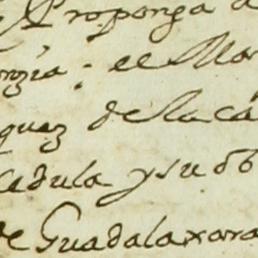 Proponga a
onzia; el Mar
quez de la cá
cedula y su ob
de Guadalaxara